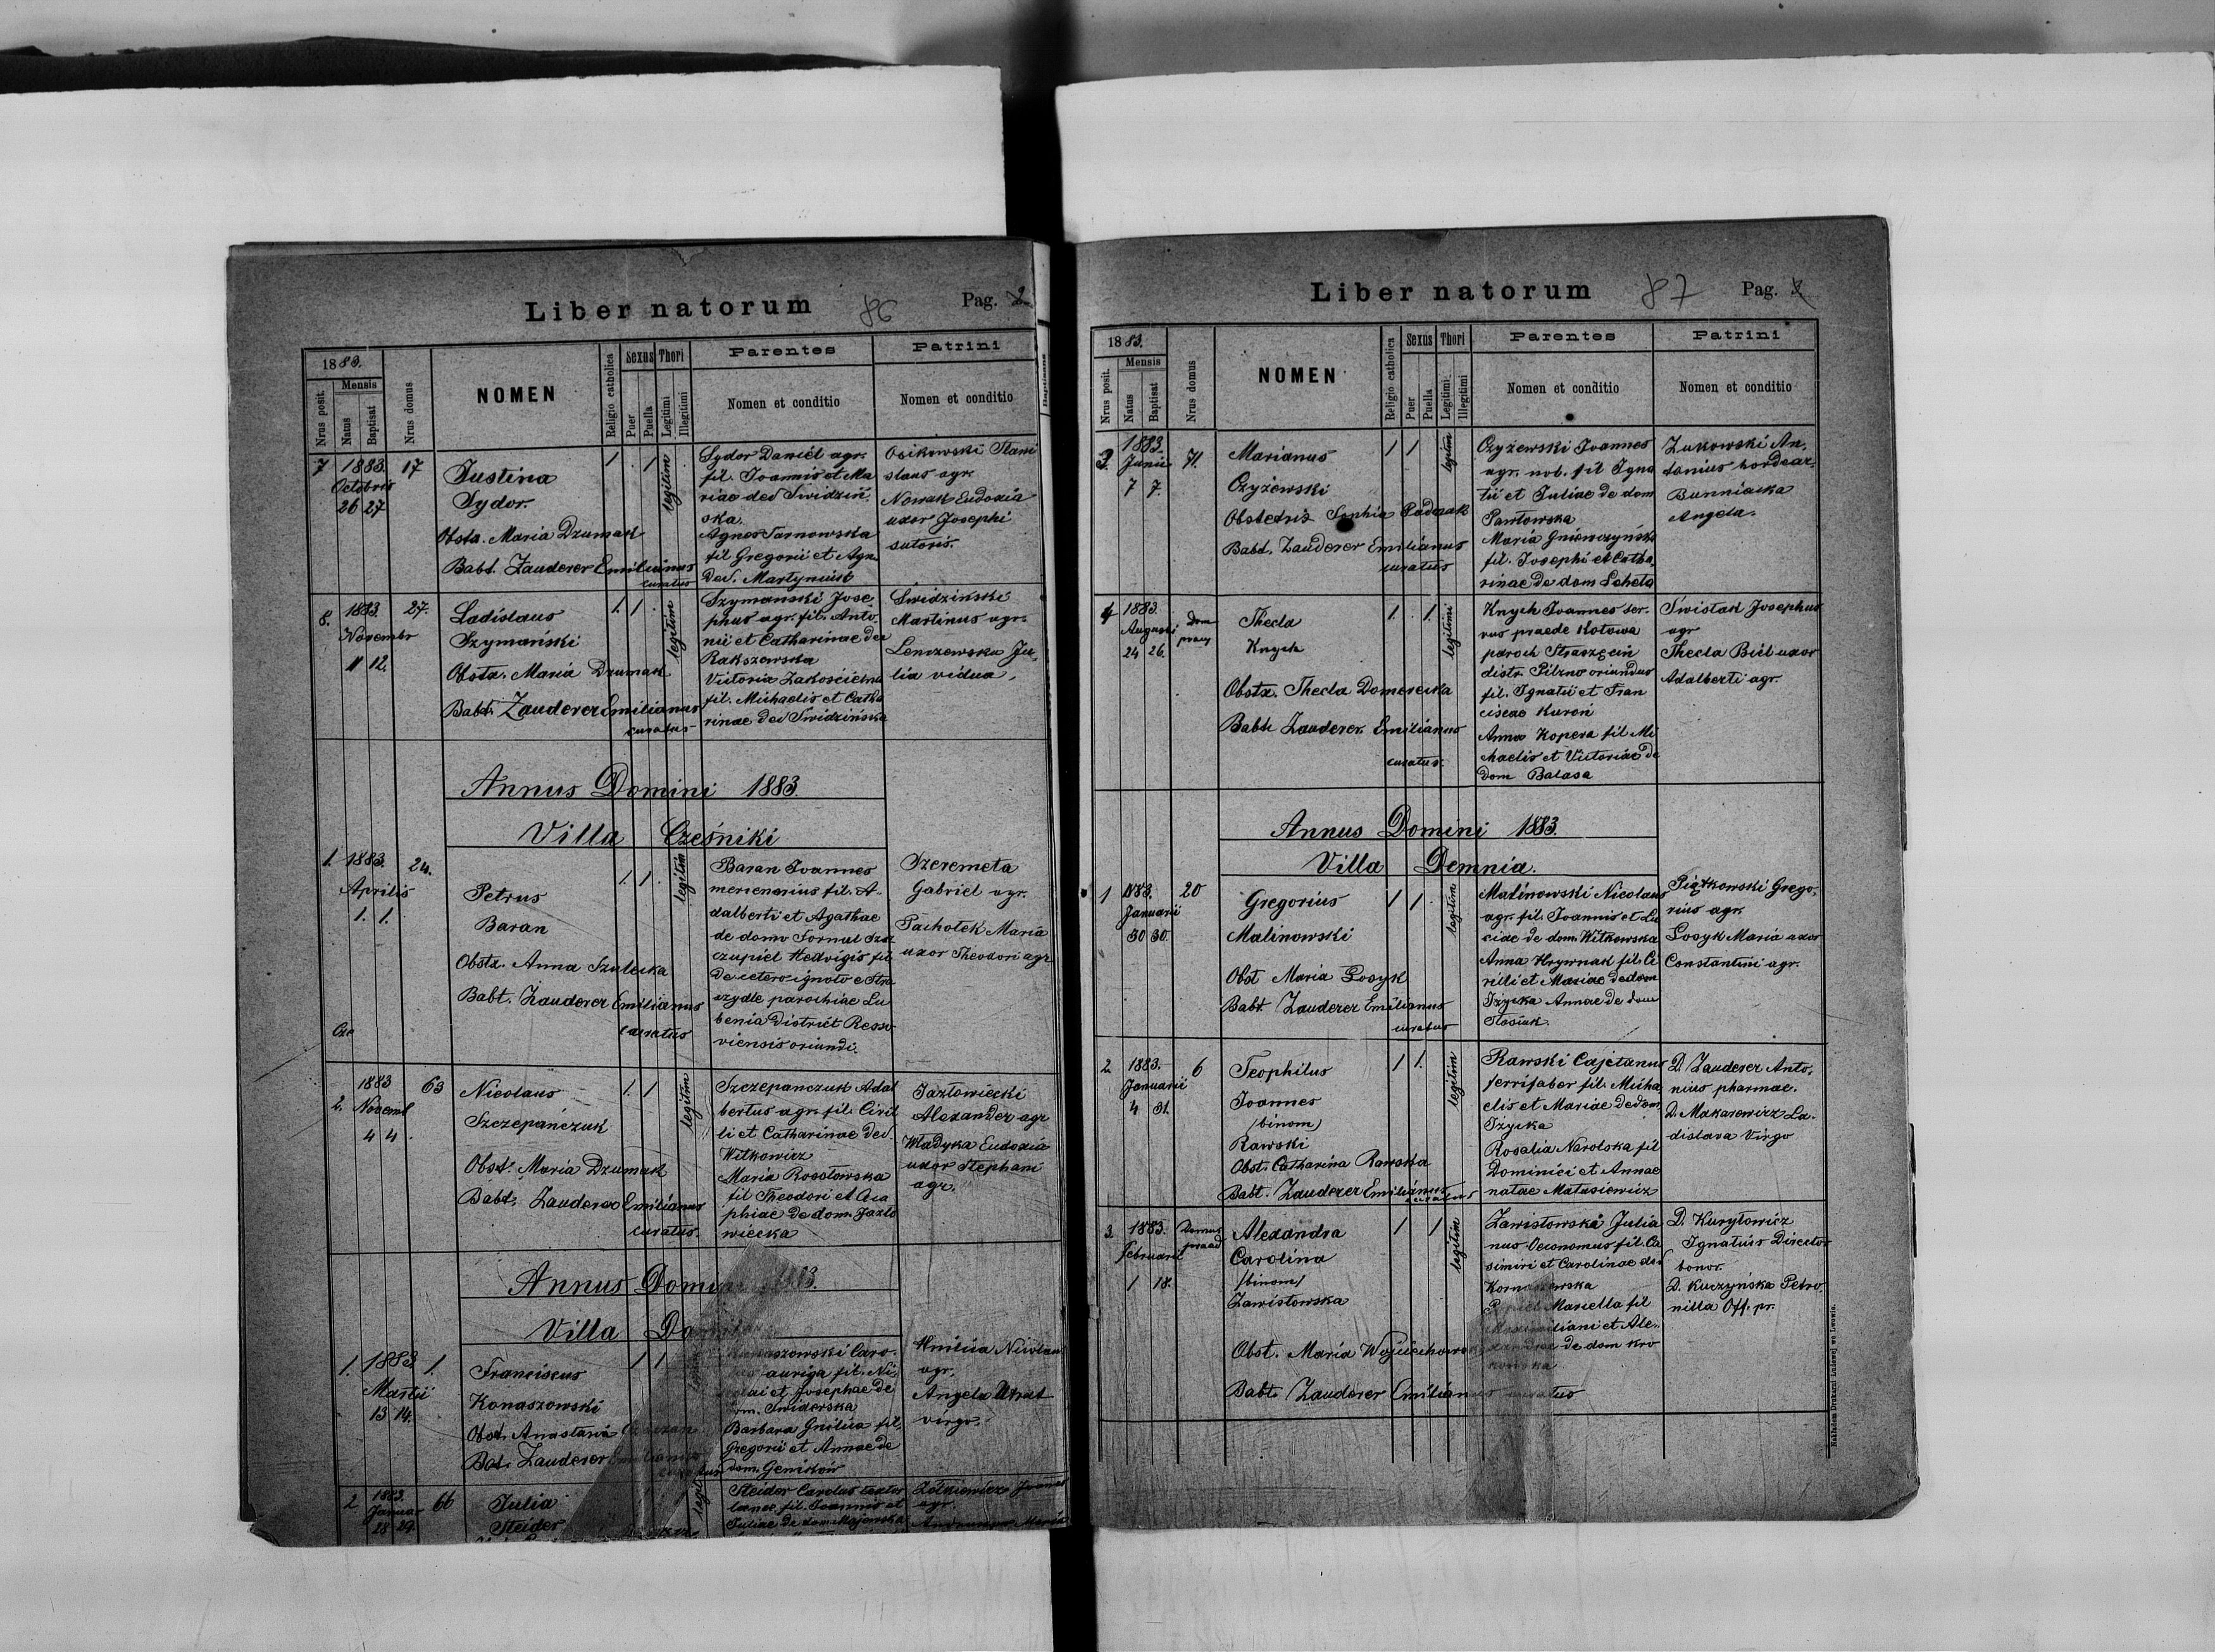 Liber natorum
86
Pag. 2
1883.
Mensis
Nrus posit.
Natus
Baptisat
Nrus domus
NOMEN
Religio catholica
Sexus
Puer
Puella
Thori
Legitimi
Illegitimi
Parentes
Nomen et conditio
Patrini
Nomen et conditio
7
1883.
Octobris
26 27
17
Justina
Sydor.
Obstx. Maria Dzumak
Babt. Zauderer Emilianus
curatus
1
1
legitim
Sydor Daniel agr.
fil. Joannis et Ma
riae ded Swidziń
ska.
Agnes Tarnowska
fil Gregorii et Agn.
Ded. Martyniuk
Osikowski Stani
slaus agr.
Nowak Eudoxia
uxor Josephi
sutoris.
8.
1883.
Novembr
11 12.
27.
Ladislaus
Szymański
Obstx. Maria Dzumak
Babt. Zauderer Emilianus
curatus
1. 1
legitim
Szymanski Jose,
phus agr. fil. Anto.
nii et Catharinae ded
Rakszewska
Victoria Zakościelna
fil. Michaelis et Catha
rinae ded Swidzińska
Swidziński
Martinus agr.
Lenczewska Ju,
lia vidua.
Annus Domini 1883.
Villa Cześniki
1.
1883.
Aprilis
1. 1.
24.
Petrus
Baran
Obstx. Anna Szulecka
Babt. Zauderer Emilianus
curatus
Cze
1. 1
legitim
Baran Joannes
mercenarius fil. A-
dalberti et Agathae
de domo Fornul Szcz
czupiel Hedvigis fil
de cetero ignoto e Stra
szydle parochiae Lu
benia District Resso
viensis oriundi.
Szeremeta
Gabriel agr.
Pachołek Maria
uxor Theodori agr
2.
1883
Novemb
4 4.
63
Nicolaus
Szczepańczuk
Obst. Maria Dzumak
Babt. Zauderer Emilianus
curatus.
1. 1
legitim
Szczepanczuk Adal
bertus agr. fil. Ciril
li et Catharinae ded.
Witkowicz
Maria Rosołowska
fil Theodori et Aga
phiae de dom. Jazło
wiecka
Jazłowiecki
Alexander agr
Władyka Eudoxia
uxor Stephani
agr.
Annus Domini 1883.
Villa
1.
1883
Martii
13 14.
1.
Franciscus
Konaszowski
Obst. Anastasia
Bab. Zauderer Emilianus
curatus
1 1
Caro-
auriga fil. Ni
colai et Josephae de
dom. Swiderska
Barbara Gnilica fil,
Gregorii et Annae de
dom. Geników
Hnilica Nicolaus
agr.
Angela
virgo.
2
1883.
Januar
28 29.
66
Julia
Steider
Steider Carolus textor
lanae fil. Joannis et
Juliae de dom. Majewska
Żółkiewicz Joannes
agr.
Liber natorum
87
Pag.
1883.
Mensis
Nrus posit.
Natus
Baptisat
Nrus domus
NOMEN
Religio catholica
Sexus
Puer
Puella
Thori
Legitimi
Illegitimi
Parentes
Nomen et conditio
Patrini
Nomen et conditio
3.
1883.
Junii
7 7.
71.
Marianus
Czyżewski
Obstetrix Sophia Paderak
Babt. Zauderer Emilianus
curatus
1 1
legitim
Czyżewski Joannes
agr. nob. fil Igna
tii et Juliae de dom
Pawłowska
Maria Gniewczyńska
fil. Josephi et Catha,
rinae de dom Scheta
Żukowski An,
tonius hordear.
Burniacka
Angela.
4
1883.
Augusti
24 26.
Dom
praed
Thecla
Knych
Obstx. Thecla Domerecka
Babt. Zauderer Emilianus
curatus.
1. 1.
legitimi
Knych Joannes ser.
vus praede Kotowa
paroch Straszęcin
distr. Pilzno oriundus
fil. Ignatii et Fran
ciscae Kuroń
Anna Kopera fil Mi
chaelis et Victoriae de
dom Balasa
Świstak Josephus
agr
Thecla Biel uxor
Adalberti agr.
Annus Domini 1883.
Villa Demnia.
1
1883.
Januarii
30 30.
20
Gregorius
Malinowski
Obst Maria Łosyk
Babt. Zauderer Emilianus
curatus
1 1
legitim
Malinowski Nicolaus
agr. fil. Joannis et Lu
ciae de dom. Witkowska
Anna Hrywnak fil. Ci
rilli et Mariae de dom
Iżycka Annae de dom
Stasiuk.
Piątkowski Grego,
rius agr.
Łosyk Maria uxor
Constantini agr.
2.
1883.
Januarii
4 31.
6
Teophilus
Joannes
(binom)
Rawski
Obst. Catharina Rawska
Babt. Zauderer Emilianus
curatus
1 1.
legitim
Rawski Cajetanus
ferrifaber fil. Micha
elis et Mariae de dom
Iżycka
Rosalia Narolska fil
Dominici et Annae
natae Matasiewicz
D. Zauderer Anto,
nius pharmac.
D. Makarewicz La-
dislava Virgo
3.
1883.
Februarii
1 18.
Domus
praed
Alexandra
Carolina
(binom)
Zawistowska
Obst. Maria Wojciechowska
Babt. Zauderer Emilianus curatus
1 1
legitim
Zawistowski Julia
nus Oeconomus fil. Ca
simiri et Carolinae de
Mariella fil
Maximiliani et Ale-
xandrae de dom Kro
nowska
D. Kuryłowicz
Ignatius Director
bonor.
D. Kuczyńska Petro
nilla Off. pr.
Nakładem Drukarni Ludowej we Lwowie.